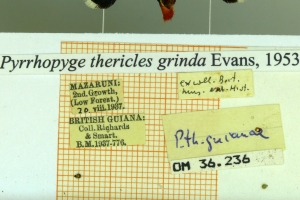 Pyrrhopyge thericles grinda Evans, 1953
MAZARUNI:
2nd. Growth,
(Low Forest.)
20.viii.1937.
BRITISH GUIANA:
Coll. Richards
& Smart.
B.M.1937-776.
ex coll. Brit.
Mus. Nat. Hist.
P.th.guianae
DM 36.236